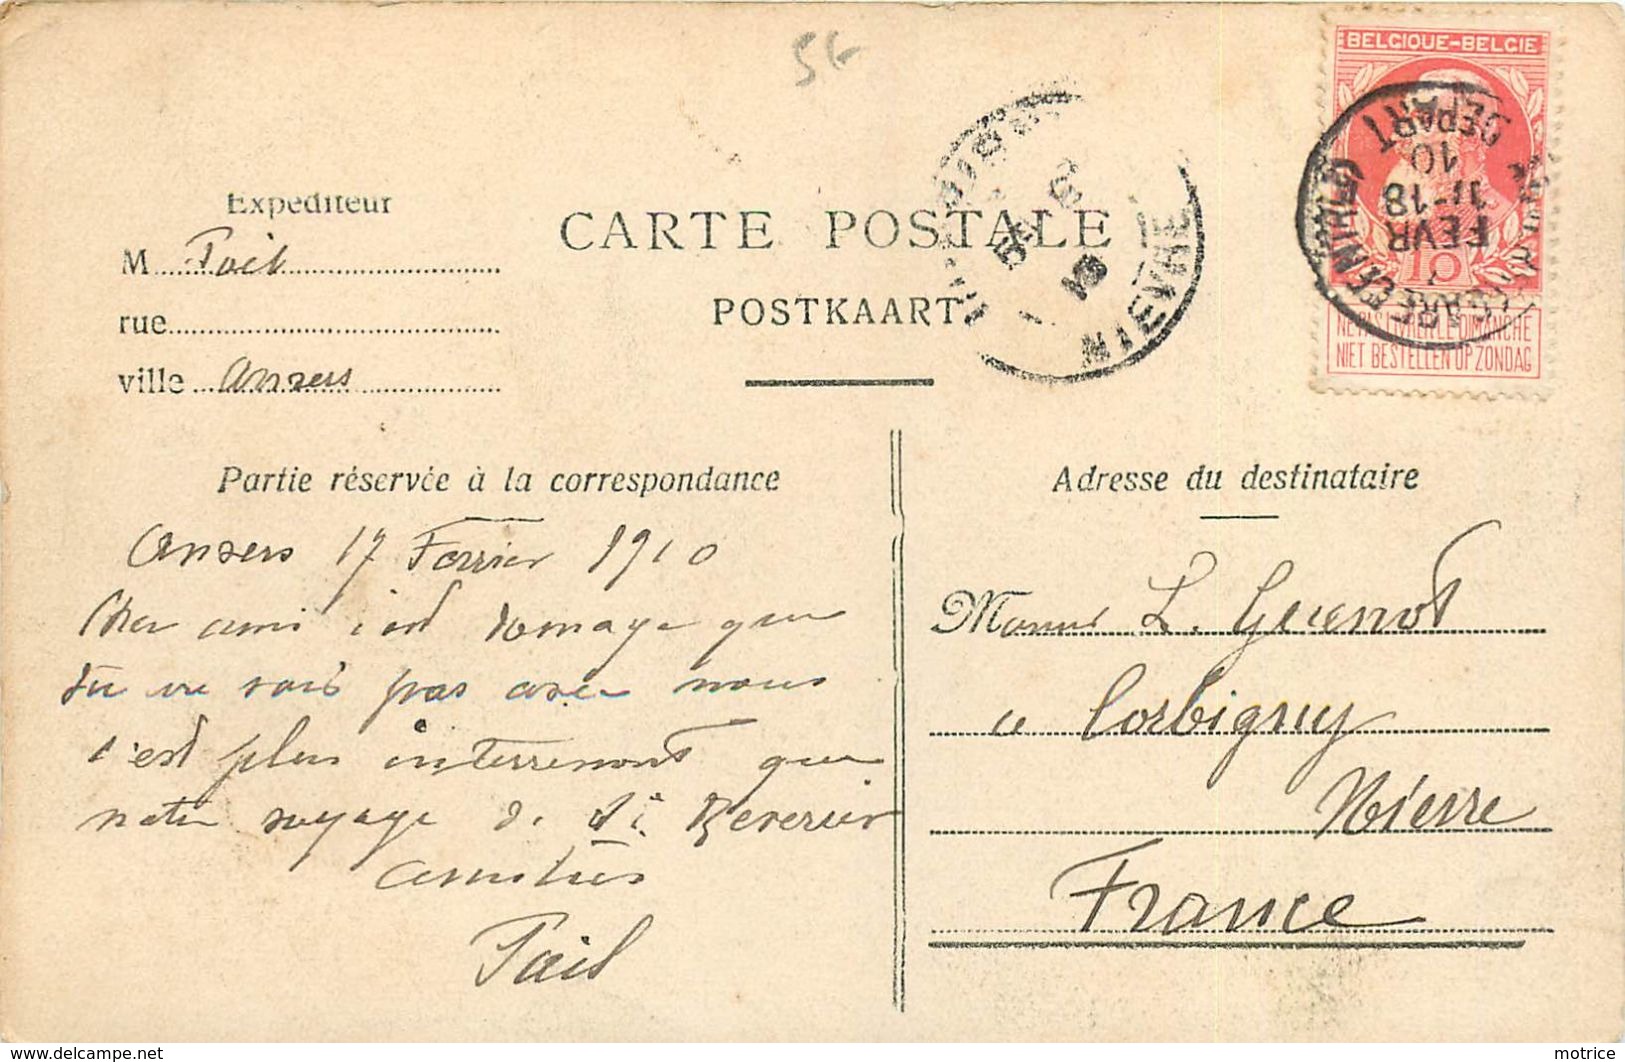 56
BELGIQUE-BELGIE
DEPART
10
11-18
FEVR
10
GARE CENTRALE
NE PAS LIVRER LE DIMANCHE
NIET BESTELLEN OP ZONDAG
NIEVRE
Expéditeur
M Pail
rue
ville Anvers
CARTE POSTALE
POSTKAART
Partie réservée à la correspondance
Anvers 17 Fevrier 1910
Cher ami c'est domage que
tu ne sois pas avec nous
c'est plus interresent que
notre voyage de St Reverien
amitiés
Pail
Adresse du destinataire
L. Guenot
a Corbigny
Nièvre
France
www.delcampe.net
motrice